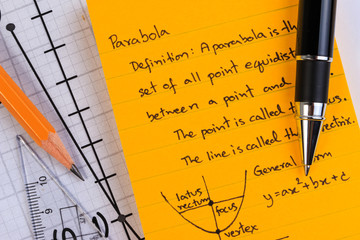 Parabola
Definition: A parabola is the
set of all point equidist
between a point and
The point is called the focus.
The line is called the directrix.
General form
y=ax²+bx+c
latus
rectum
focus
vertex
10